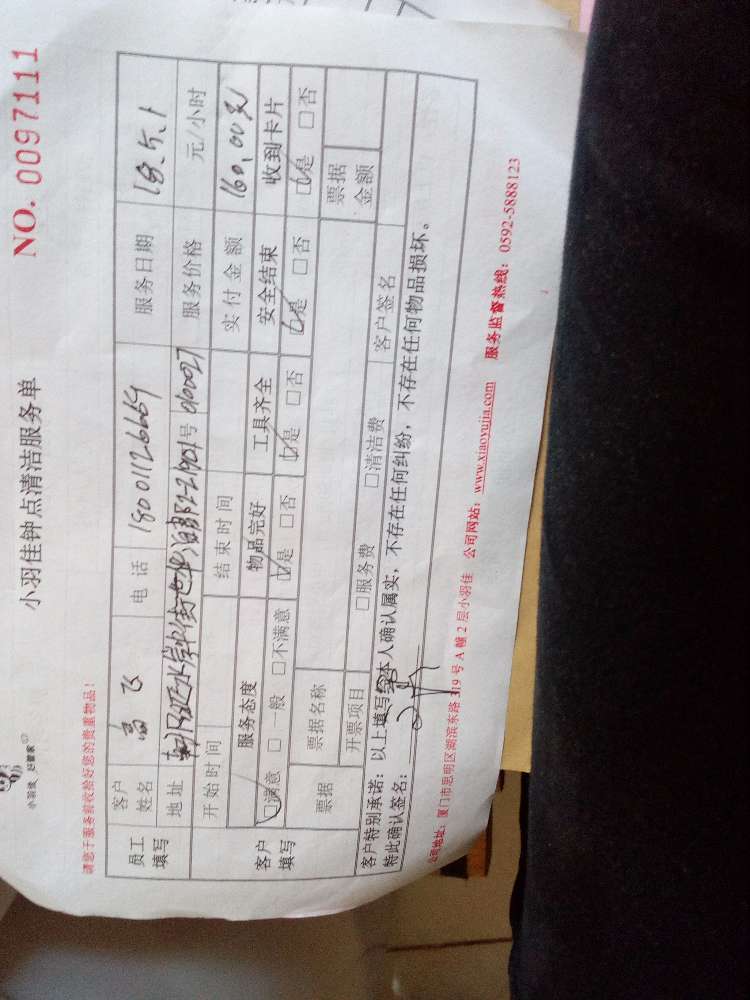 小羽佳 好管家
小羽佳钟点清洁服务单
NO. 0097111
请您于服务前收拾好您的贵重物品！
员工填写
客户姓名 高飞 电话 18001126664 服务日期 18.5.1
地址 服务价格 元/小时
开始时间 结束时间 实付金额 160.00元
客户填写
服务态度 物品完好 工具齐全 安全结束 收到卡片
□满意 □一般 □不满意 □是 □否 □是 □否 □是 □否 □是 □否
票据 票据名称 票据金额
开票项目 □服务费 □清洁费 客户签名
客户特别承诺：以上填写经本人确认属实，不存在任何纠纷，不存在任何物品损坏。
特此确认签名：
公司地址：厦门市思明区湖滨东路319号A幢2层小羽佳 公司网站：www.xiaoyujia.com 服务监督热线：0592-5888123